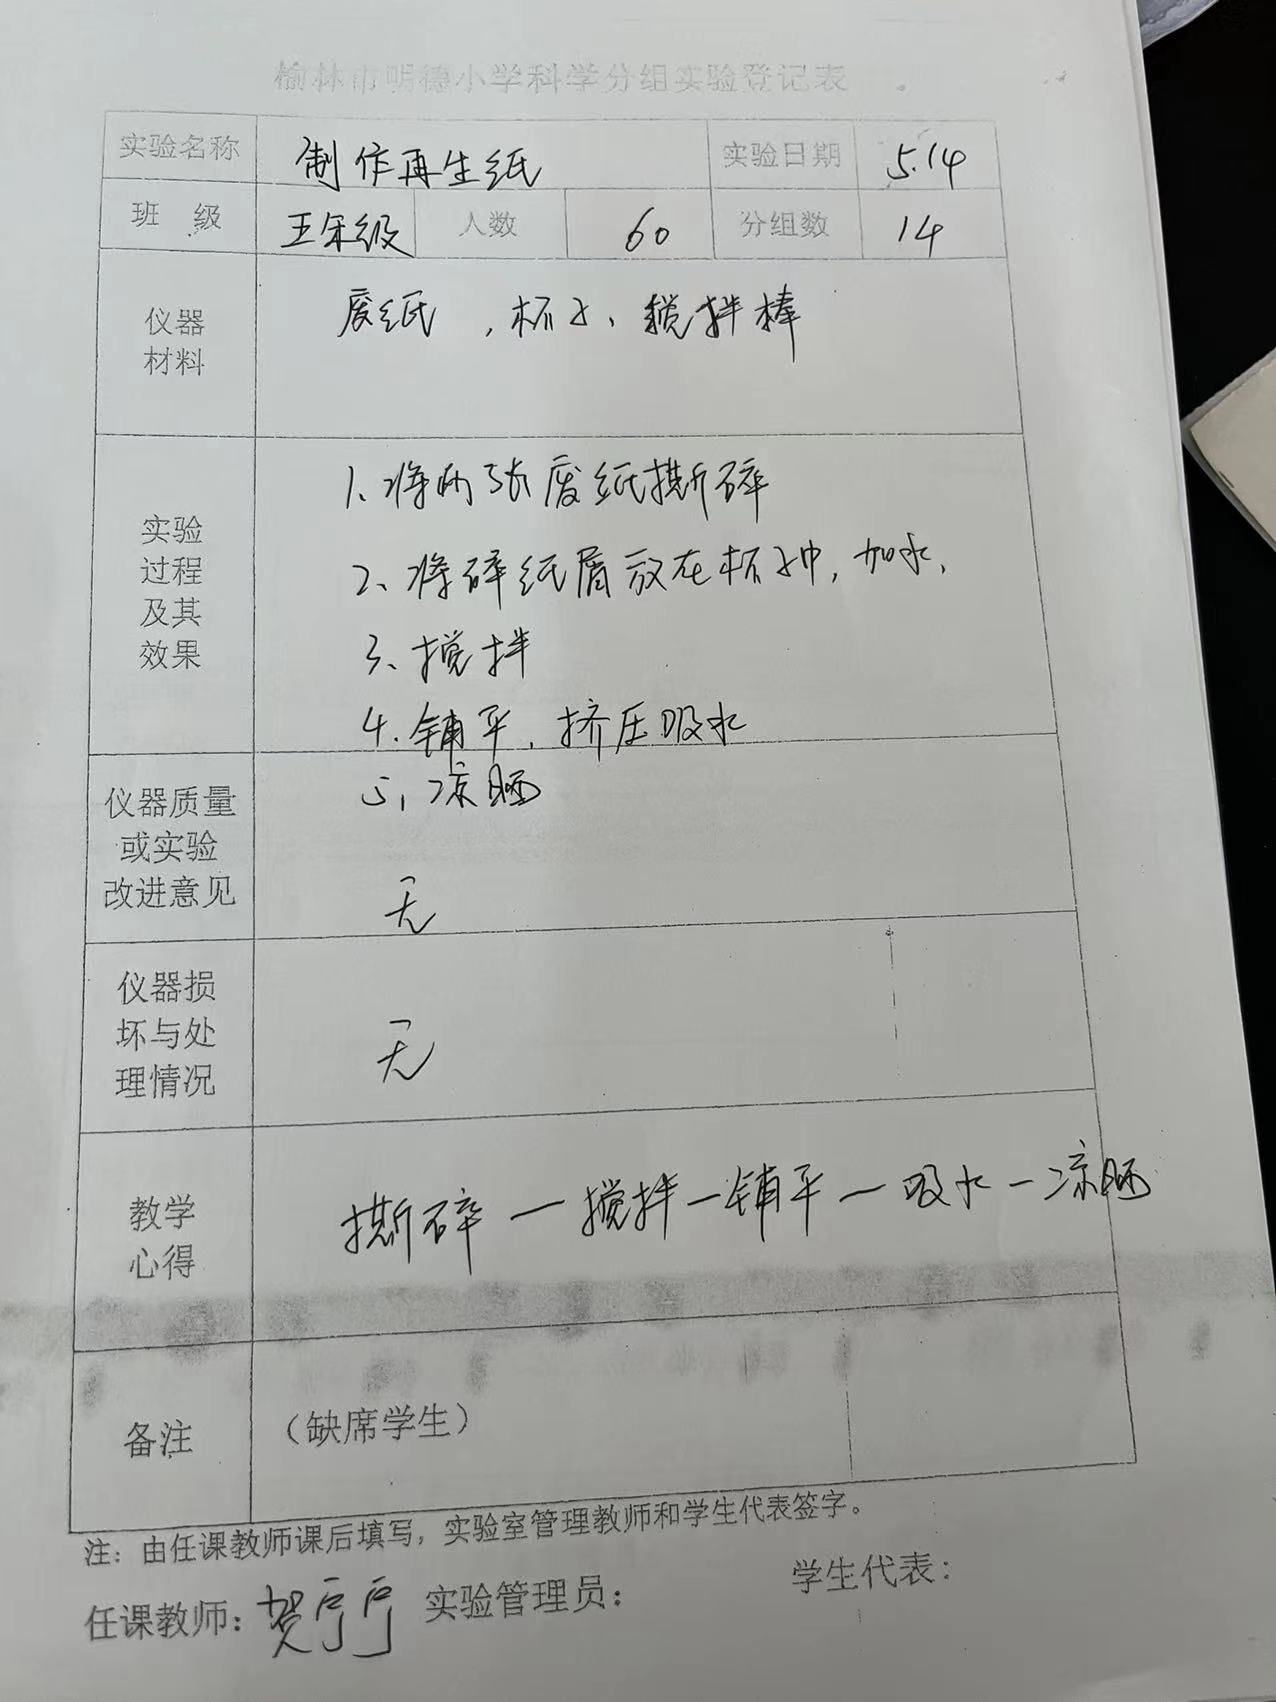 榆林市明德小学科学分组实验登记表
实验名称 制作再生纸 实验日期 5.14
班 级 五年级 人数 60 分组数 14
仪器
材料
废纸,杯子、搅拌棒
实验
过程
及其
效果
1、将两张废纸撕碎
2、将碎纸屑放在杯子中,加水、
3、搅拌
4.铺平、挤压吸水
5、凉晒
仪器质量
或实验
改进意见
无
仪器损
坏与处
理情况
无
教学
心得
撕碎一搅拌一铺平一吸水一凉晒
备注 (缺席学生)
注:由任课教师课后填写,实验室管理教师和学生代表签字。
任课教师:贺 实验管理员: 学生代表: